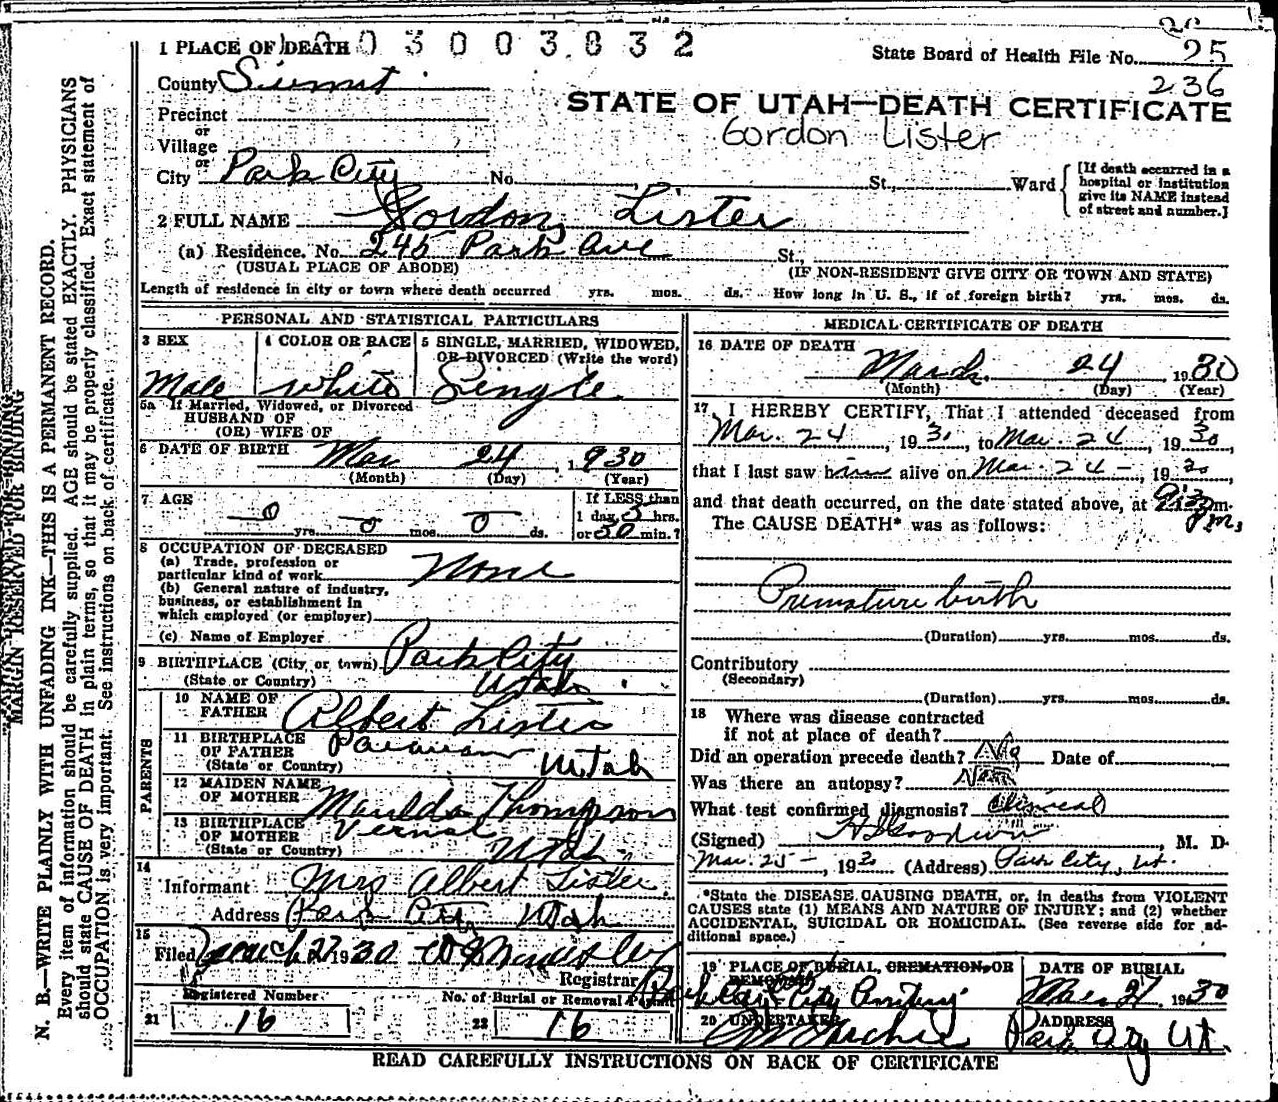 1 PLACE OF DEATH 0 0 3 0 0 3 8 3 2
State Board of Health File No. 25
236
County Summit
STATE OF UTAH—DEATH CERTIFICATE
Gordon Lister
Precinct
or
Village
or
City Park City No. St., Ward
[If death occurred in a
hospital or institution
give its NAME instead
of street and number.]
2 FULL NAME Gordon Lister
(a) Residence. No. 245 Park Ave St.,
(USUAL PLACE OF ABODE) (IF NON-RESIDENT GIVE CITY OR TOWN AND STATE)
Length of residence in city or town where death occurred yrs. mos. ds. How long in U. S., if of foreign birth? yrs. mos. ds.
PERSONAL AND STATISTICAL PARTICULARS
3 SEX
Male
4 COLOR OR RACE
White
5 SINGLE, MARRIED, WIDOWED,
OR DIVORCED (Write the word)
Single
5a If Married, Widowed, or Divorced
HUSBAND OF
(OR) WIFE OF
6 DATE OF BIRTH Mar 24, 1930
(Month) (Day) (Year)
7 AGE 0 yrs. 0 mos. 0 ds.
If LESS than
1 day 3 hrs.
or 30 min.?
8 OCCUPATION OF DECEASED
(a) Trade, profession or
particular kind of work None
(b) General nature of industry,
business, or establishment in
which employed (or employer)
(c) Name of Employer
9 BIRTHPLACE (City or town) Park City
(State or Country) Utah
PARENTS
10 NAME OF
FATHER Albert Lister
11 BIRTHPLACE
OF FATHER Parowan
(State or Country) Utah
12 MAIDEN NAME
OF MOTHER Maulda Thompson
13 BIRTHPLACE
OF MOTHER Vernal
(State or Country) Utah
14
Informant Mrs Albert Lister
Address Park City Utah
15
Filed March 27 1930
Registrar
Registered Number
21 16
No. of Burial or Removal Permit
22 16
MEDICAL CERTIFICATE OF DEATH
16 DATE OF DEATH
March 24, 1930
(Month) (Day) (Year)
17 I HEREBY CERTIFY, That I attended deceased from
Mar. 24, 1930, to Mar. 24, 1930,
that I last saw him alive on Mar. 24, 1930
and that death occurred, on the date stated above, at m.
P.M.
The CAUSE DEATH* was as follows:
Premature birth
(Duration) yrs. mos. ds.
Contributory
(Secondary)
(Duration) yrs. mos. ds.
18 Where was disease contracted
if not at place of death?
Did an operation precede death? No Date of
Was there an autopsy?
What test confirmed diagnosis? Clinical
(Signed) M. D.
Mar. 25, 1930 (Address) Park City, Ut.
*State the DISEASE CAUSING DEATH, or, in deaths from VIOLENT
CAUSES state (1) MEANS AND NATURE OF INJURY; and (2) whether
ACCIDENTAL, SUICIDAL OR HOMICIDAL. (See reverse side for ad-
ditional space.)
19 PLACE OF BURIAL, CREMATION, OR
REMOVAL
Park City
DATE OF BURIAL
Mar 27 1930
20 UNDERTAKER
ADDRESS
Park City Ut.
READ CAREFULLY INSTRUCTIONS ON BACK OF CERTIFICATE
MARGIN RESERVED FOR BINDING
N. B.—WRITE PLAINLY WITH UNFADING INK—THIS IS A PERMANENT RECORD.
Every item of information should be carefully supplied. AGE should be stated EXACTLY. PHYSICIANS
should state CAUSE OF DEATH in plain terms, so that it may be properly classified. Exact statement of
OCCUPATION is very important. See instructions on back of certificate.